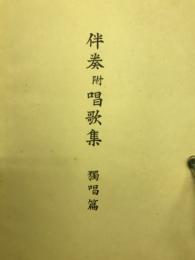 伴奏附唱歌集 獨唱篇